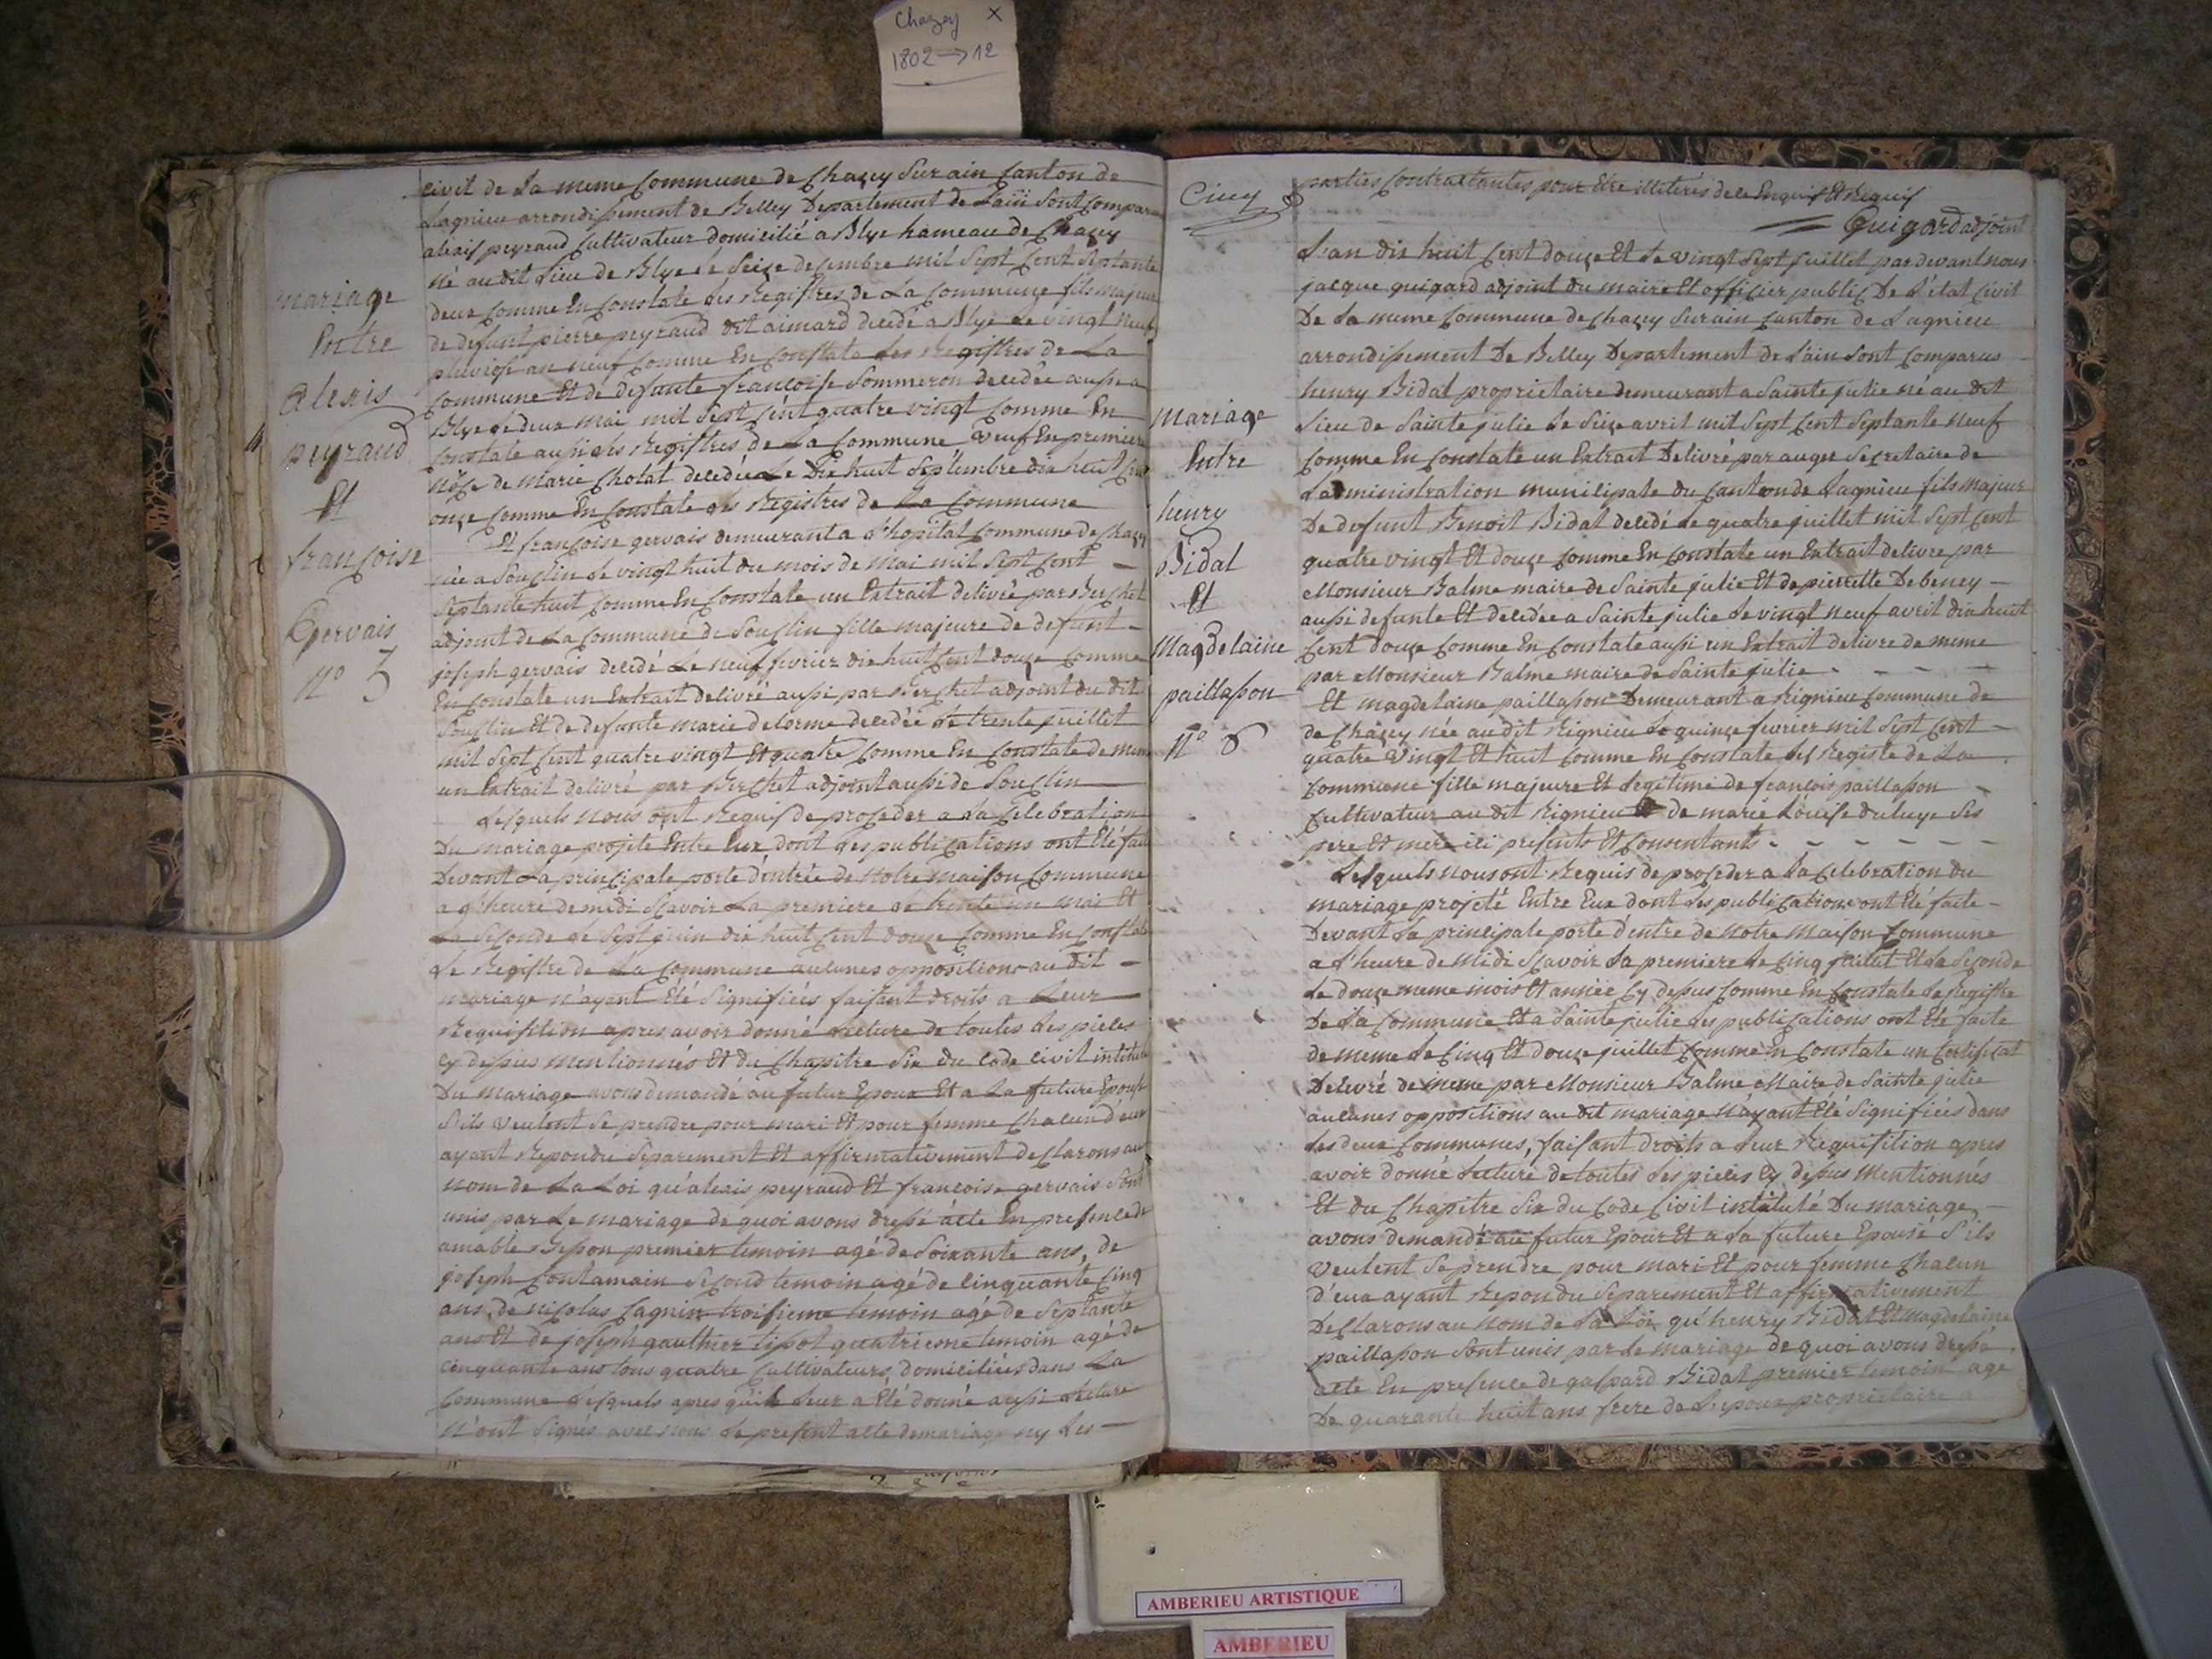 Chazey X
1802 → 12
civil de La meme Commune de Chazey Sur ain Canton de
Lagnieu arrondissement de Belley Departement de Lain Sont Comparus
alexis peyraud Cultivateur domicilié a Blye hameau de Chazey
né au dit Lieu de Blye Le Seize decembre mil Sept Cent Septante
deux Comme En Constate Les Registres de La Commune fils majeur
de defunt pierre peyraud dit aimard decedé a Blye Le vingt neuf
pluviose an neuf Comme En Constate Les Registres de La
Commune Et de defunte francoise Sommeron decedée aussi a
Blye Le deux mai mil Sept Cent quatre vingt Comme En
Constate aussi Les Registres de La Commune veuf En premiere
nôce de Marie Cholat decedée Le Dix huit Septembre dix huit Cent
onze Comme En Constate Les Registres de La Commune
Et francoise gervais demeurant a L'hopital Commune de Chazey
née a Souclin Le vingt huit du mois de Mai mil Sept Cent
Septante huit Comme En Constate un Extrait delivré par Berchet
adjoint de La Commune de Souclin fille majeure de defunt
joseph gervais decedé Le neuf fevrier dix huit Cent douze Comme
En Constate un Extrait delivré aussi par Berchet adjoint du dit
Souclin Et de defunte marie delorme decedée Le trente juillet
mil Sept Cent quatre vingt Et quatre Comme En Constate de meme
un Extrait delivré par Berchet adjoint aussi de Souclin
Lesquels nous ont Requis de proceder a La Celebration
Du mariage projeté Entre Eux dont Les publications ont Eté faite
Devant La principale porte d'entrée de Notre maison Commune
a L'heure de midi Scavoir La premiere Le trente un mai Et
La Seconde Le Sept juin dix huit Cent douze Comme En Constate
Le Registre de La Commune aucunes oppositions au dit
mariage n'ayant Eté Signifiées faisant droits a Leur
Requisition apres avoir donné Lecture de toutes Les pieces
Cy dessus mentionnés Et du Chapitre Six du Code civil intitulé
Du Mariage avons demandé au futur Epoux Et a La future Epouse
S'ils veulent Se prendre pour mari Et pour femme Chacun d'eux
ayant Repondu Separement Et affirmativement declarons au
nom de La Loi qu'alexis peyraud Et francoise gervais Sont
unis par Le mariage de quoi avons dressé acte En presence de
amable Besson premier temoin agé de Soixante ans, de
joseph Contamain Second temoin agé de Cinquante Cinq
ans, de nicolas Cagnin troisieme temoin agé de Septante
ans Et de joseph gaulthier quatrieme temoin agé de
Cinquante ans tous quatre Cultivateurs domiciliés dans La
Commune Lesquels apres qu'il Leur a Eté donné aussi Lecture
N'ont Signés avec nous Le present acte de mariage ny Les
mariage
Entre
alexis
peyraud
Et
françoise
Gervais
N° 5
parties Contractantes pour Etre illiterés de le Enquis Et Requis
Guigard adjoint
L'an dix huit Cent douze Et Le vingt Sept juillet par devant nous
jacque guigard adjoint du maire Et officier public De L'état Civil
De La meme Commune de Chazey Sur ain Canton de Lagnieu
arrondissement De Belley Departement de Lain Sont Comparus
henry Bidal proprietaire demeurant a Sainte julie né au dit
Lieu de Sainte julie Le Seize avril mil Sept Cent Septante neuf
Comme En Constate un Extrait Delivré par auger Secretaire de
L'administration municipale du Canton de Lagnieu fils majeur
De defunt Benoit Bidal decedé Le quatre juillet mil Sept Cent
quatre vingt Et douze Comme En Constate un Extrait delivre par
Monsieur Balme maire de Sainte julie Et de pierrette Debeney
aussi defunte Et decedée a Sainte julie Le vingt neuf avril dix huit
Cent douze Comme En Constate aussi un Extrait delivre de meme
par Monsieur Balme maire de Sainte julie
Et magdelaine paillasson Demeurant a Rignieu Commune de
de Chazey née au dit Rignieu Le quinze fevrier mil Sept Cent
quatre Vingt Et huit Comme En Constate Les Registe de La
Commune fille majeure Et Legitime de francois paillasson
Cultivateur au dit Rignieu Et de marie Louise duluye Ses
pere Et mere ici presents Et Consentants
Lesquels nous ont Requis de proceder a La Celebration du
mariage projeté Entre Eux dont Les publications ont Eté faite
Devant La principale porte d'entre de Notre Maison Commune
a L'heure de Midi Scavoir La premiere Le Cinq juillet Et La Seconde
Le douze meme mois Et année Cy dessus Comme En Constate Le Registre
De La Commune Et a Sainte julie Les publications ont Eté faite
de meme Le Cinq Et douze juillet Comme En Constate un Certificat
Delivré de meme par Monsieur Balme Maire de Sainte julie
aucunes oppositions au dit mariage N'ayant Eté Signifiées dans
Les deux Communes, faisant droits a Leur Requisition apres
avoir donné Lecture de toutes Les pieces Cy dessus Mentionnés
Et du Chapitre Six du Code Civil intitulé Du mariage
avons demandé au futur Epoux Et a La future Epouse S'ils
Veulent Se prendre pour mari Et pour femme Chacun
d'eux ayant Repondu Separement Et affirmativement
Declarons au Nom de La Loi qu'henry Bidal Et magdelaine
paillasson Sont unis par Le mariage de quoi avons dressé
acte En presence de gaspard Bidal premier temoin agé
De quarante huit ans frere de L'epoux proprietaire
Cinq
Mariage
Entre
henry
Bidal
Et
Magdelaine
paillasson
N° 6
AMBERIEU ARTISTIQUE
AMBERIEU